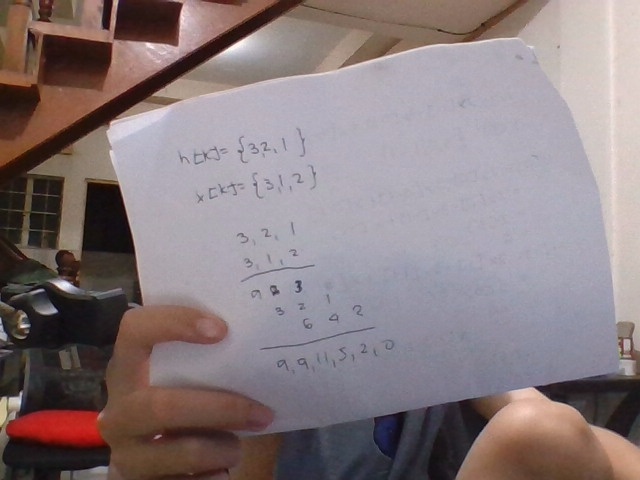 h[k]= {3,2,1}
x[k]= {3,1,2}
3, 2, 1
3, 1, 2
9 3
3 2 1
6 4 2
9, 9, 11, 5, 2, 0